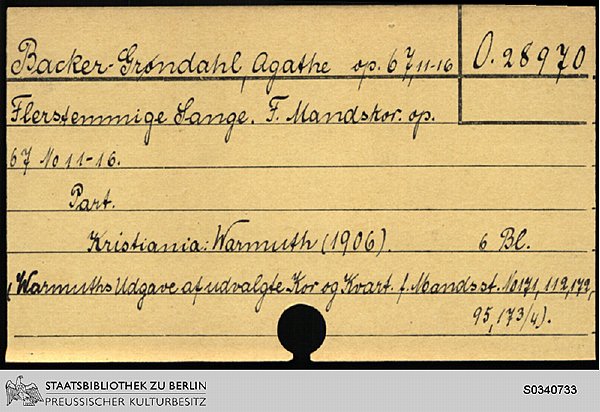 Backer-Grøndahl, Agathe op. 67,11-16
O. 28970
Flerstemmige Sange. F. Mandskor. op.
67 No 11-16.
Part.
Kristiania: Warmuth (1906). 6 Bl.
(Warmuths Udgave af udvalgte Kor og Kvart. f. Mandsst. No 171, 112, 172,
95, 173/4).
STAATSBIBLIOTHEK ZU BERLIN
PREUSSISCHER KULTURBESITZ
S0340733